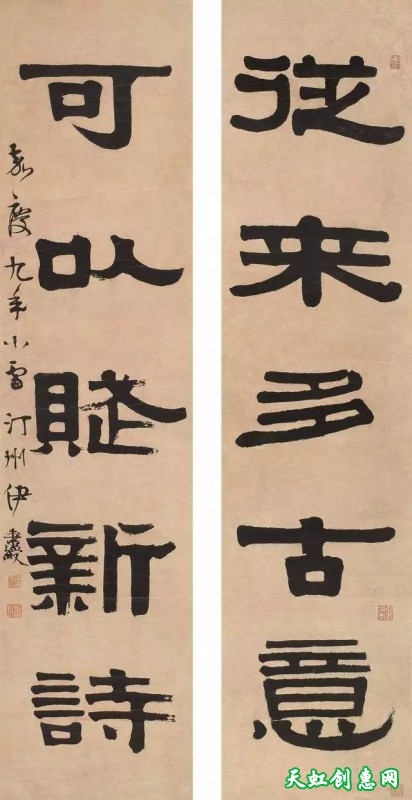 從来多古意
可以賦新詩
嘉慶九年小雪汀州伊秉綬
天虹创惠网